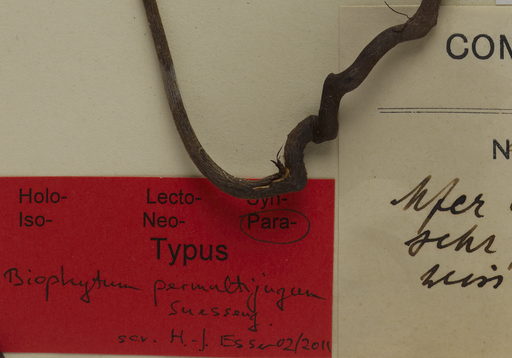 Holo- Lecto- Syn-
Iso- Neo- Para-
Typus
Biophytum permultijugum
Suesseng.
scr. H.-J. Esser 02/2011
COM
N
Ufer
sehr
weiss